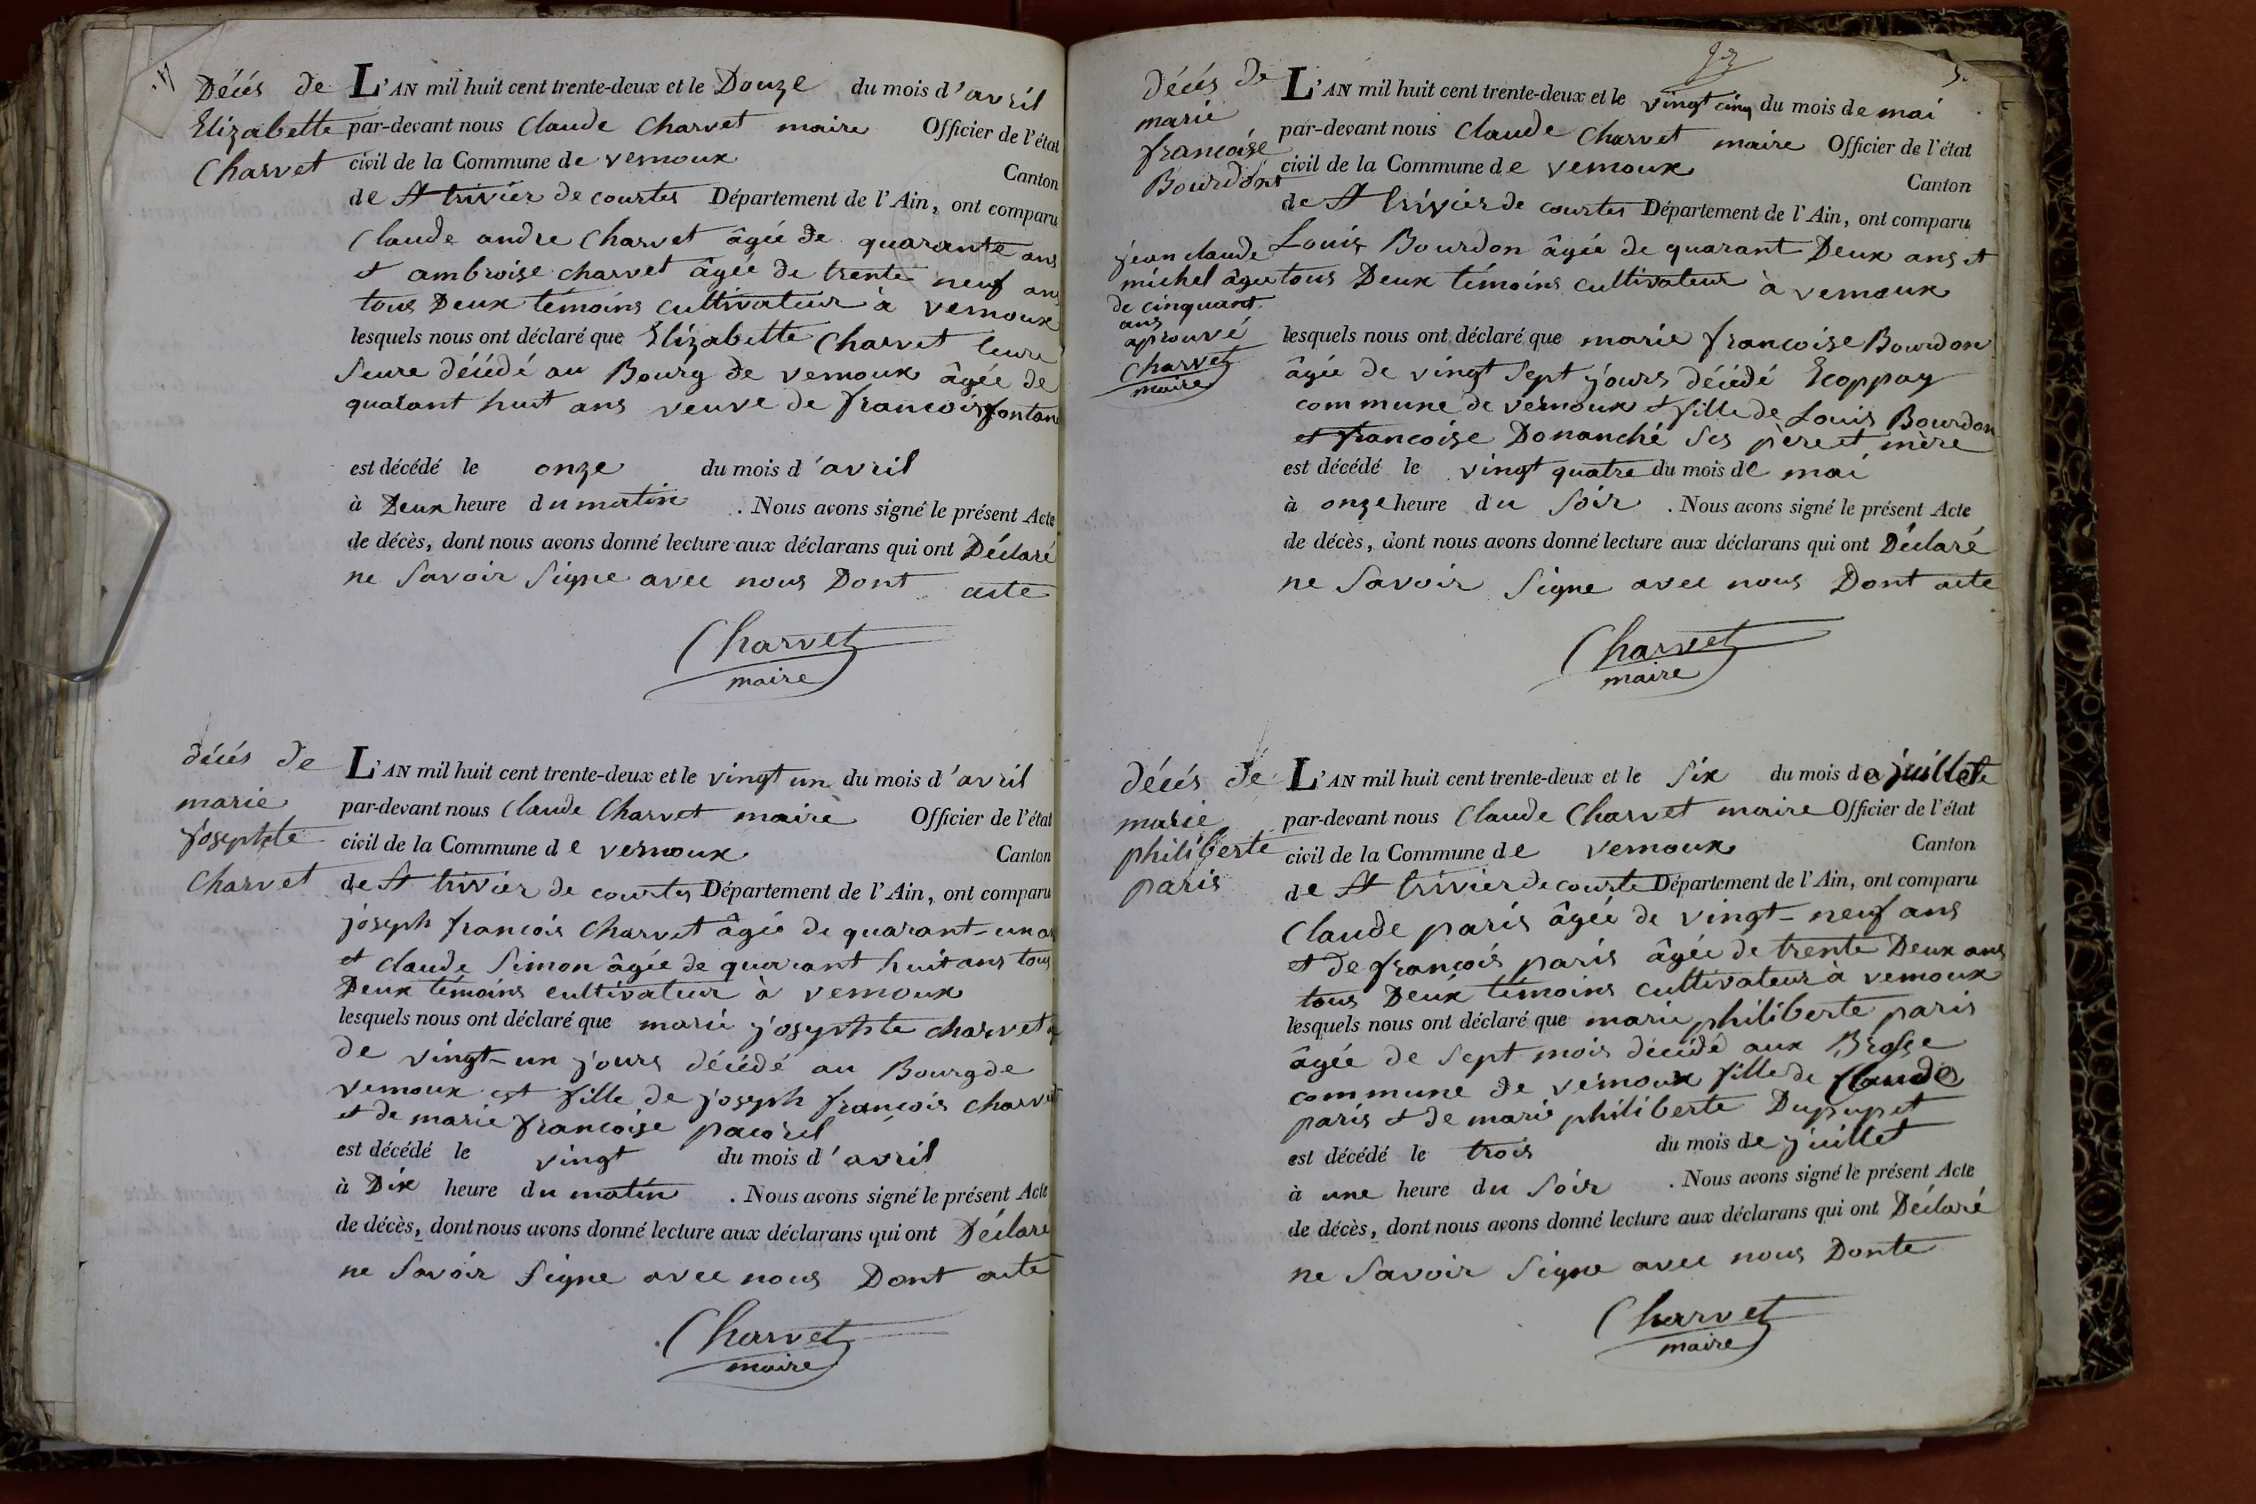 Décés de
Elizabette
Charvet
L'AN mil huit cent trente-deux et le Douze du mois d'avril
par-devant nous Claude Charvet maire Officier de l'état
civil de la Commune de vernoux
Canton
de St trivier de courtes Département de l'Ain, ont comparu
Claude andre Charvet âgée de quarante ans
et ambroise charvet âgée de trente neuf ans
tous Deux témoins cultivateur à vernoux
lesquels nous ont déclaré que Elizabette Charvet leure
seure décédé au Bourg de vernoux âgée de
quarant huit ans veuve de francois fontan
est décédé le onze du mois d'avril
à Deux heure du matin . Nous avons signé le présent Acte
de décès, dont nous avons donné lecture aux déclarans qui ont Déclaré
ne savoir signe avec nous Dont acte
Charvet
maire
décés de
marie
josephte
Charvet
L'AN mil huit cent trente-deux et le vingt un du mois d'avril
par-devant nous Claude Charvet maire Officier de l'état
civil de la Commune de vernoux
Canton
de St trivier de courtes Département de l'Ain, ont comparu
joseph francois Charvet âgée de quarant-un
et claude Simon âgée de quarant huit ans tous
Deux témoins cultivateur à vernoux
lesquels nous ont déclaré que marie josephte charvet
de vingt-un jours décédé au Bourg de
vernoux est fille de joseph francois charvet
et de marie francoise pacorel
est décédé le vingt du mois d'avril
à Dix heure du matin . Nous avons signé le présent Acte
de décès, dont nous avons donné lecture aux déclarans qui ont Déclaré
ne savoir signe avec nous Dont acte
Charvet
maire
décés de
marie
francoise
Bourdon
jean claude
michel âgée
de cinquant
ans
aprouvé
Charvet
maire
L'AN mil huit cent trente-deux et le vingt cinq du mois de mai
par-devant nous Claude Charvet maire Officier de l'état
civil de la Commune de vernoux
Canton
de St trivier de courtes Département de l'Ain, ont comparu
Louis Bourdon âgée de quarant Deux ans et
tous Deux témoins cultivateur à vernoux
lesquels nous ont déclaré que marie francoise Bourdon
âgée de vingt sept jours décédé Ecoppay
commune de vernoux et fille de Louis Bourdon
et francoise Donanché ses père et mère
est décédé le vingt quatre du mois de mai
à onze heure du soir . Nous avons signé le présent Acte
de décès, dont nous avons donné lecture aux déclarans qui ont Déclaré
ne savoir signe avec nous Dont acte
Charvet
maire
décés de
marie
philiberte
paris
L'AN mil huit cent trente-deux et le six du mois de juillete
par-devant nous Claude Charvet maire Officier de l'état
civil de la Commune de vernoux
Canton
de St trivier de courte Département de l'Ain, ont comparu
Claude paris âgée de vingt-neuf ans
et de francois paris âgée de trente Deux ans
tous Deux témoins cultivateur à vernoux
lesquels nous ont déclaré que marie philiberte paris
âgée de sept mois décédé aux Brosse
commune de vernoux fille de Claude
paris et de marie philiberte Dupupet
est décédé le trois du mois de juillet
à une heure du soir . Nous avons signé le présent Acte
de décès, dont nous avons donné lecture aux déclarans qui ont Déclaré
ne savoir signe avec nous Donte
Charvet
maire